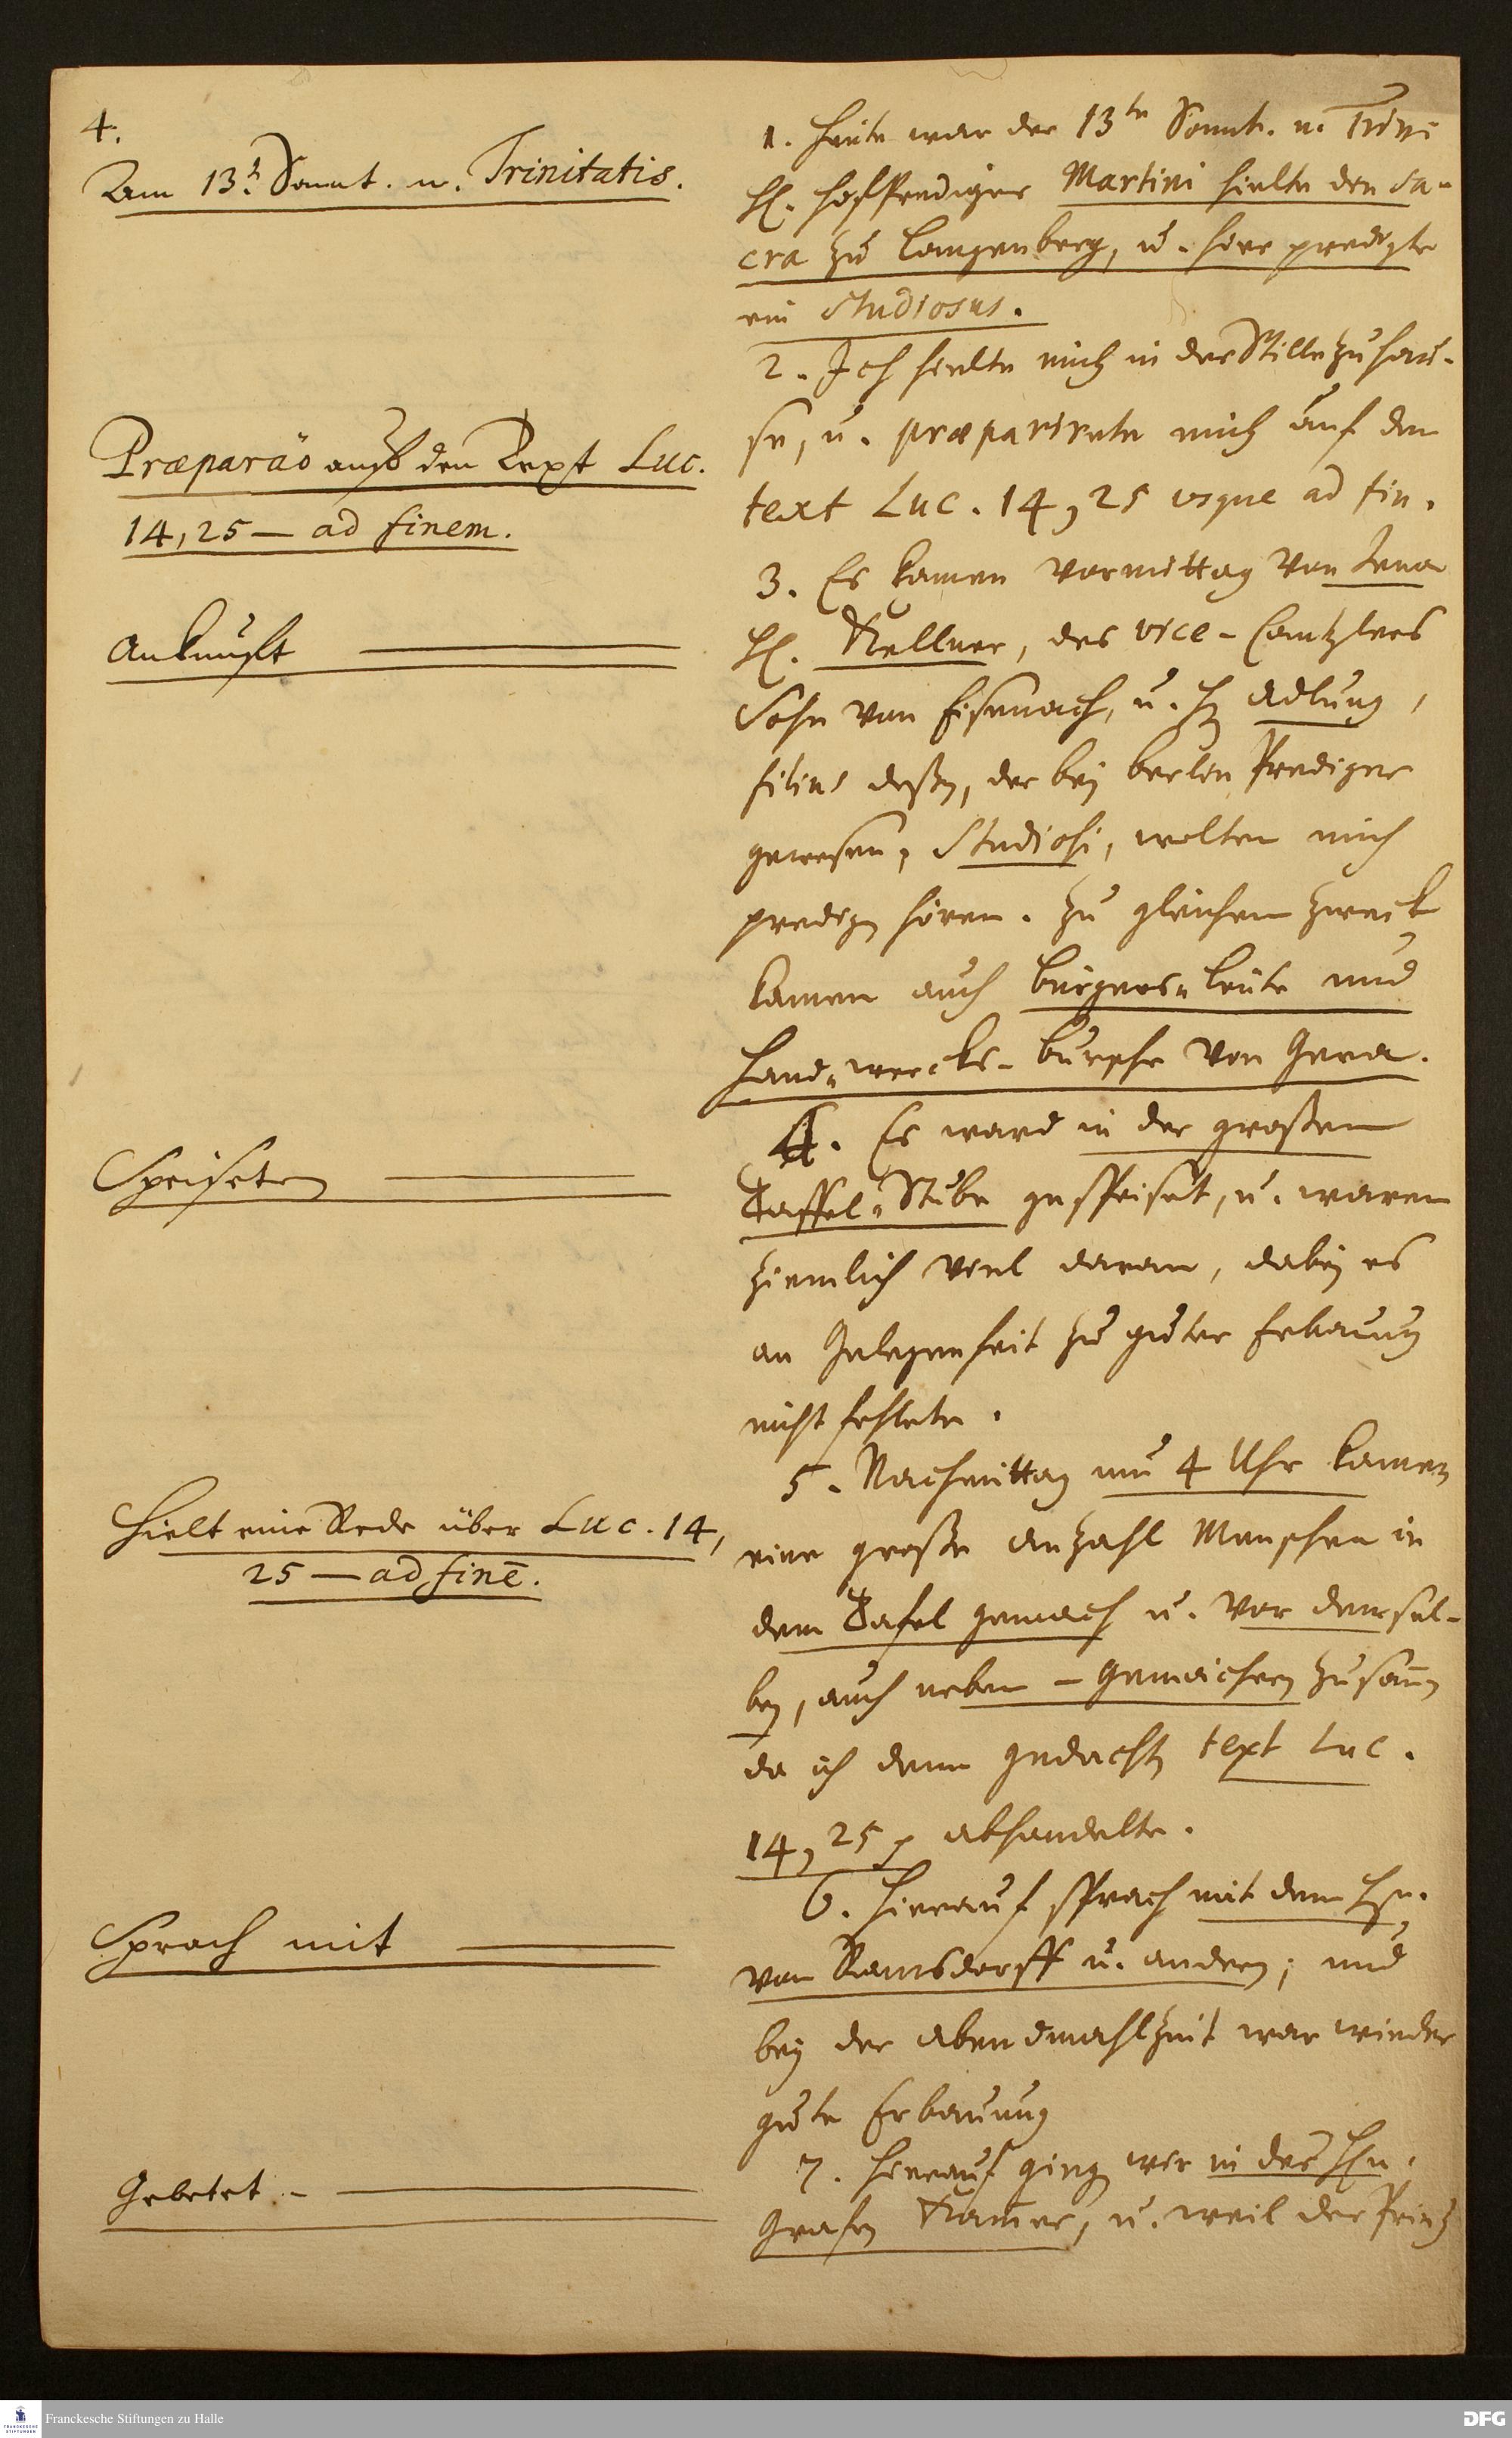 4.
Am 13. Sonnt. n. Trinitatis.
Præparão auf den Text Luc.
14, 25 — ad finem.
Ankunfft
Speiseten
Hielt eine Rede über Luc. 14,
25 — ad finē.
Sprach mit
Gebetet.
1. Heute war der 13te Sonnt. n. Trini
H. Hoffprediger Martini hielte den sa-
cra zu Langenberg, u. hier predigte
ein Studiosus.
2. Ich hielte mich in der Stille zu Hau-
se, u. præparirete mich auf den
text Luc. 14, 25 usque ad fin.
3. Es kamen Vormittag von Jena
H. Kellner, des vice-Cantzlers
Sohn von Eisenach, u. H Adlung,
filius deßen, der bey Berlin Prediger
gewesen, Studiosi, wolten mich
predigen hören. Zu gleichem Zweck
kamen auch Bürgers-Leute und
Handwercks-Bursche von Gera.
4. Es ward in der großen
Taffel-Stube gespeiset, u. waren
ziemlich viel daran, dabey es
an Gelegenheit zu guter Erbauung
nicht fehlete.
5. Nachmittag um 4 Uhr kamen
eine große Anzahl Menschen in
dem Tafel gemach u. vor demsel-
ben, auch neben-Gemächern zusamen
da ich denn gedachten text Luc.
14, 25 abhandelte.
6. Hierauf sprach mit dem Hrn.
von Ramsdorff u. andern; und
bey der Abendmahlzeit war wieder
gute Erbauung
7. Hierauf gingen wir in des Hrn.
Grafen Kamer, u. weil der Printz
Franckesche Stiftungen zu Halle
DFG